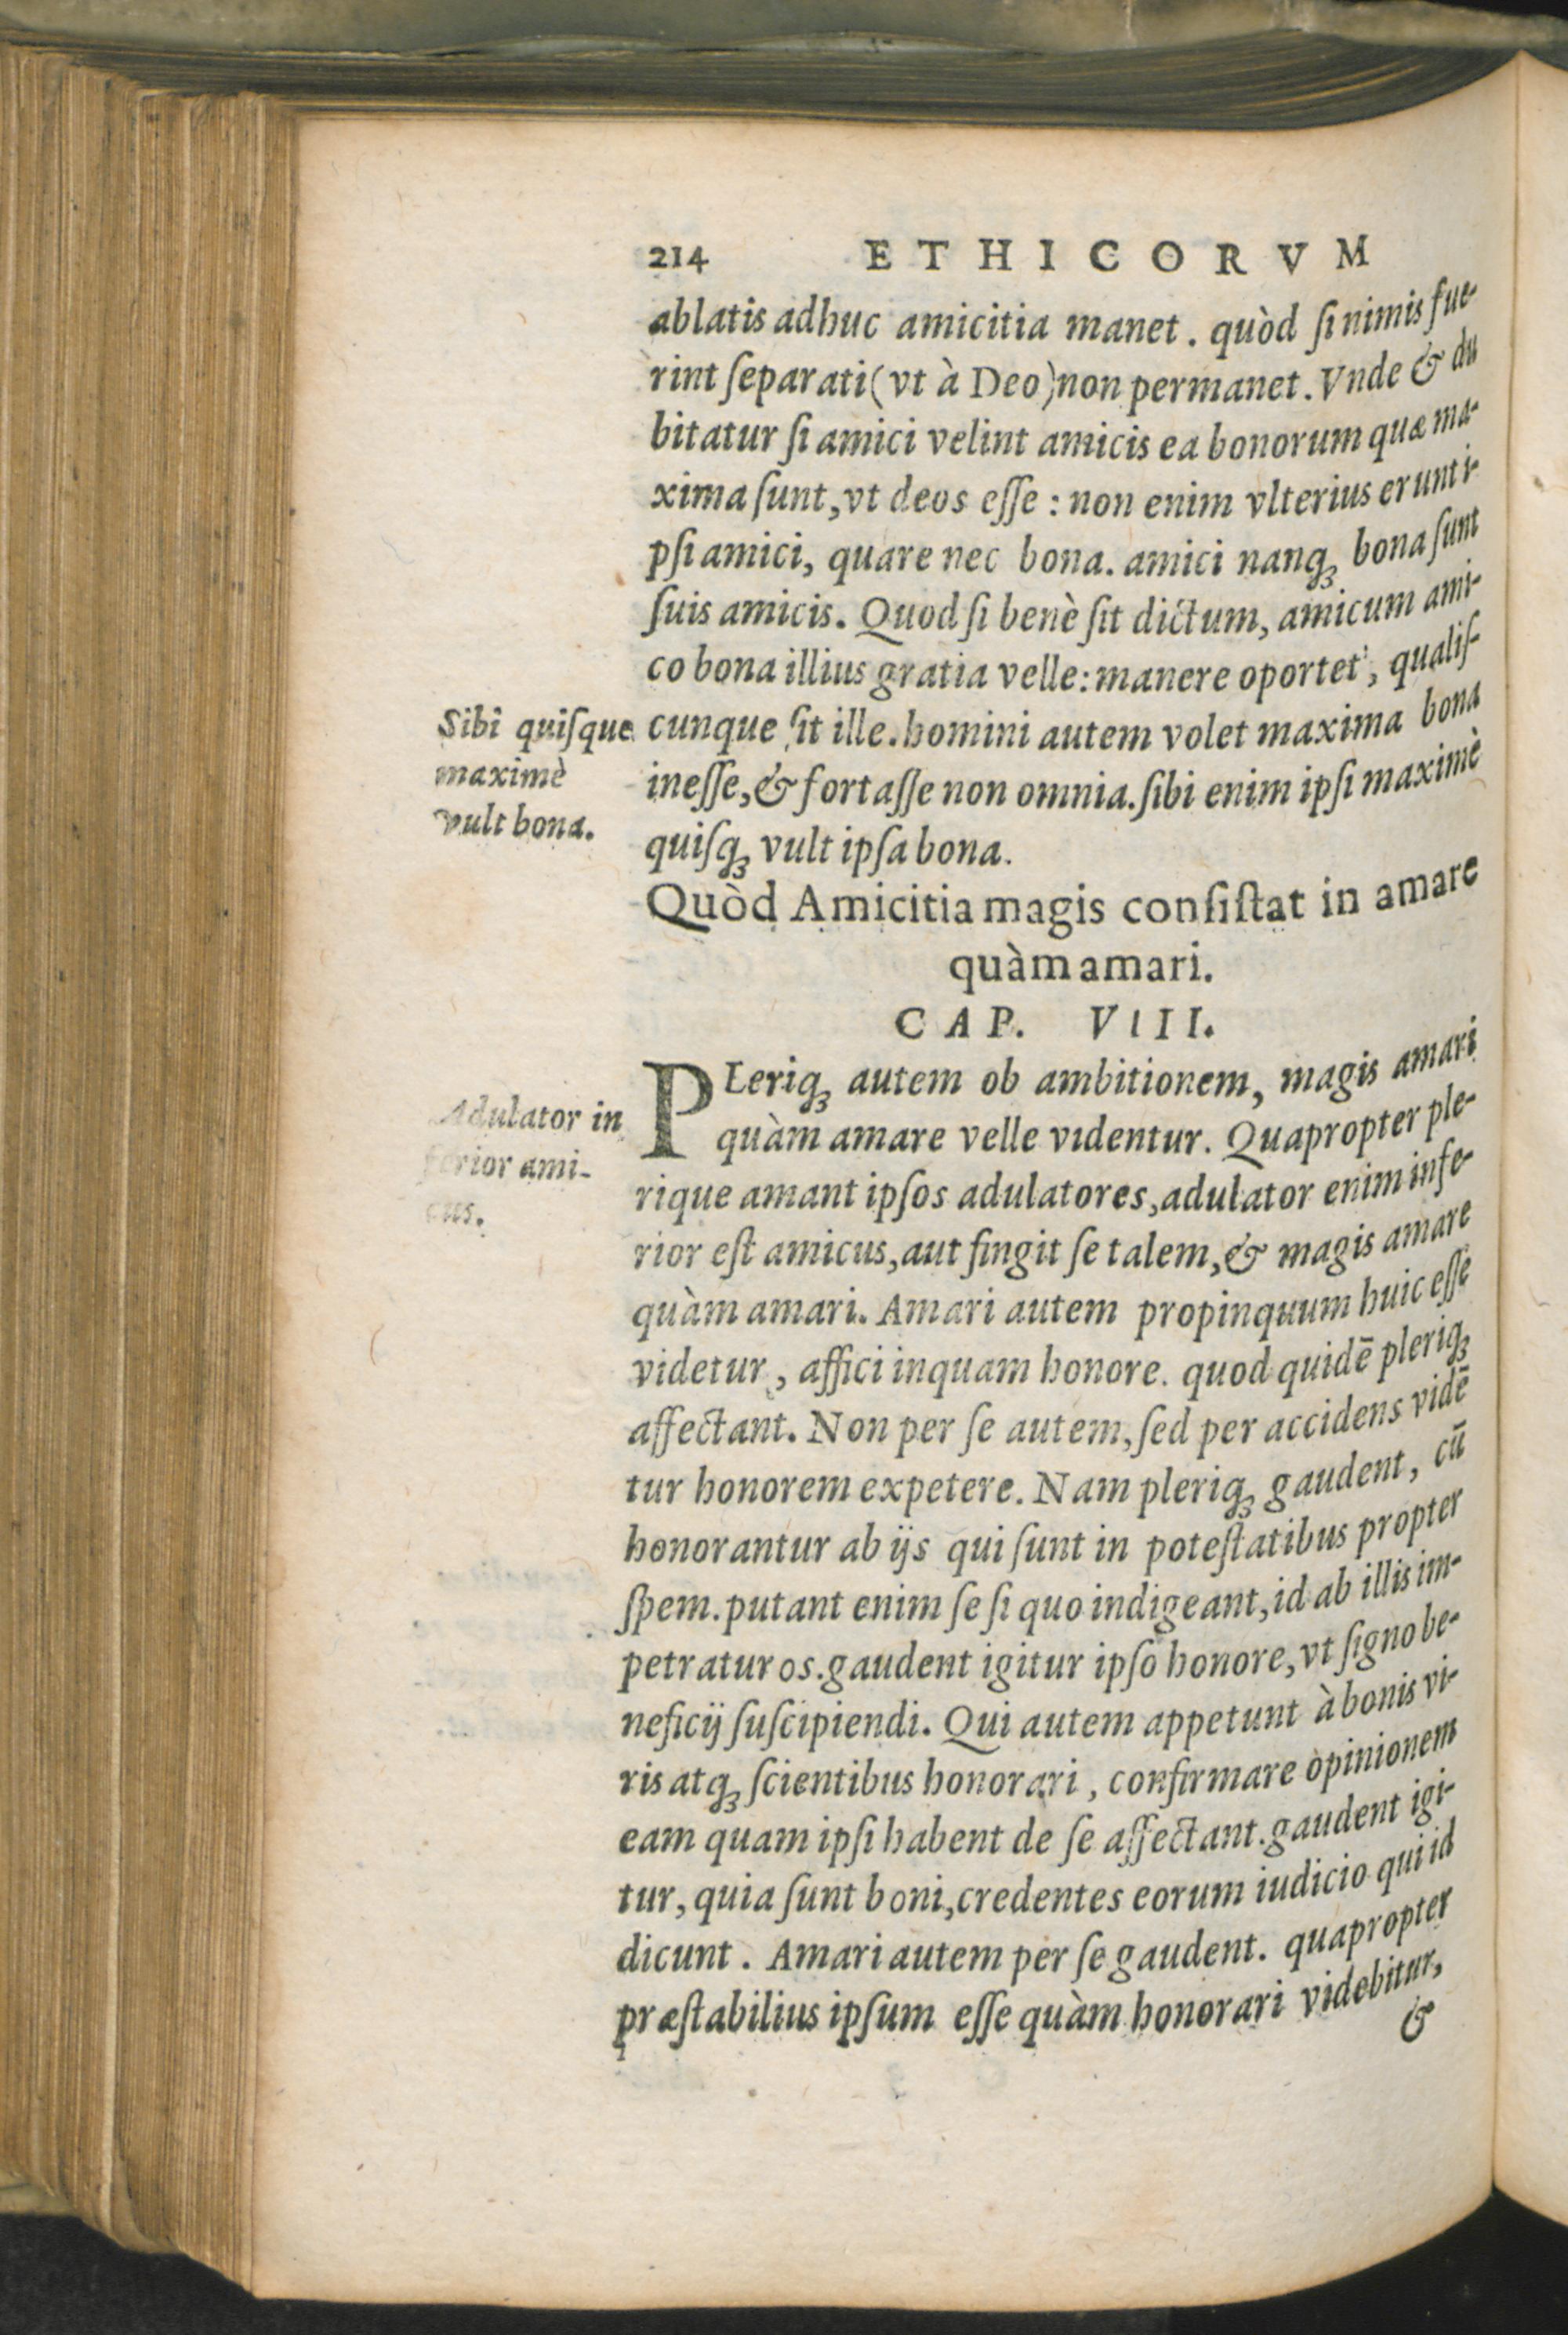 214 ETHICORVM
ablatis adhuc amicitia manet. quòd ſi nimis fue-
rint ſeparati (vt à Deo) non permanet. Vnde & du
bitatur ſi amici velint amicis ea bonorum quæ ma-
xima ſunt, vt deos eſſe: non enim vlterius erunt i-
pſi amici, quare nec bona. amici nanqꝫ bona ſunt
ſuis amicis. Quod ſi benè ſit dictum, amicum ami-
co bona illius gratia velle: manere oportet, qualiſ-
cunque ſit ille. homini autem volet maxima bona
ineſſe, & fortaſſe non omnia. ſibi enim ipſi maximè
quiſqꝫ vult ipſa bona.
Sibi quiſque
maximè
vult bona.
Quòd Amicitia magis conſiſtat in amare
quàm amari.
CAP. VIII.
PLeriqꝫ autem ob ambitionem, magis amari
quàm amare velle videntur. Quapropter ple-
rique amant ipſos adulatores, adulator enim infe-
rior eſt amicus, aut fingit ſe talem, & magis amare
quàm amari. Amari autem propinquum huic eſſe
videtur, affici inquam honore. quod quidē pleriqꝫ
affectant. Non per ſe autem, ſed per accidens vidē
tur honorem expetere. Nam pleriqꝫ gaudent, cū
honorantur ab ijs qui ſunt in poteſtatibus propter
ſpem. putant enim ſe ſi quo indigeant, id ab illis im-
petraturos. gaudent igitur ipſo honore, vt ſigno be-
neficij ſuſcipiendi. Qui autem appetunt à bonis vi-
ris atqꝫ ſcientibus honorari, confirmare opinionem
eam quam ipſi habent de ſe affectant. gaudent igi-
tur, quia ſunt boni, credentes eorum iudicio qui id
dicunt. Amari autem per ſe gaudent. quapropter
præſtabilius ipſum eſſe quàm honorari videbitur,
&
Adulator in
ferior ami-
cus.